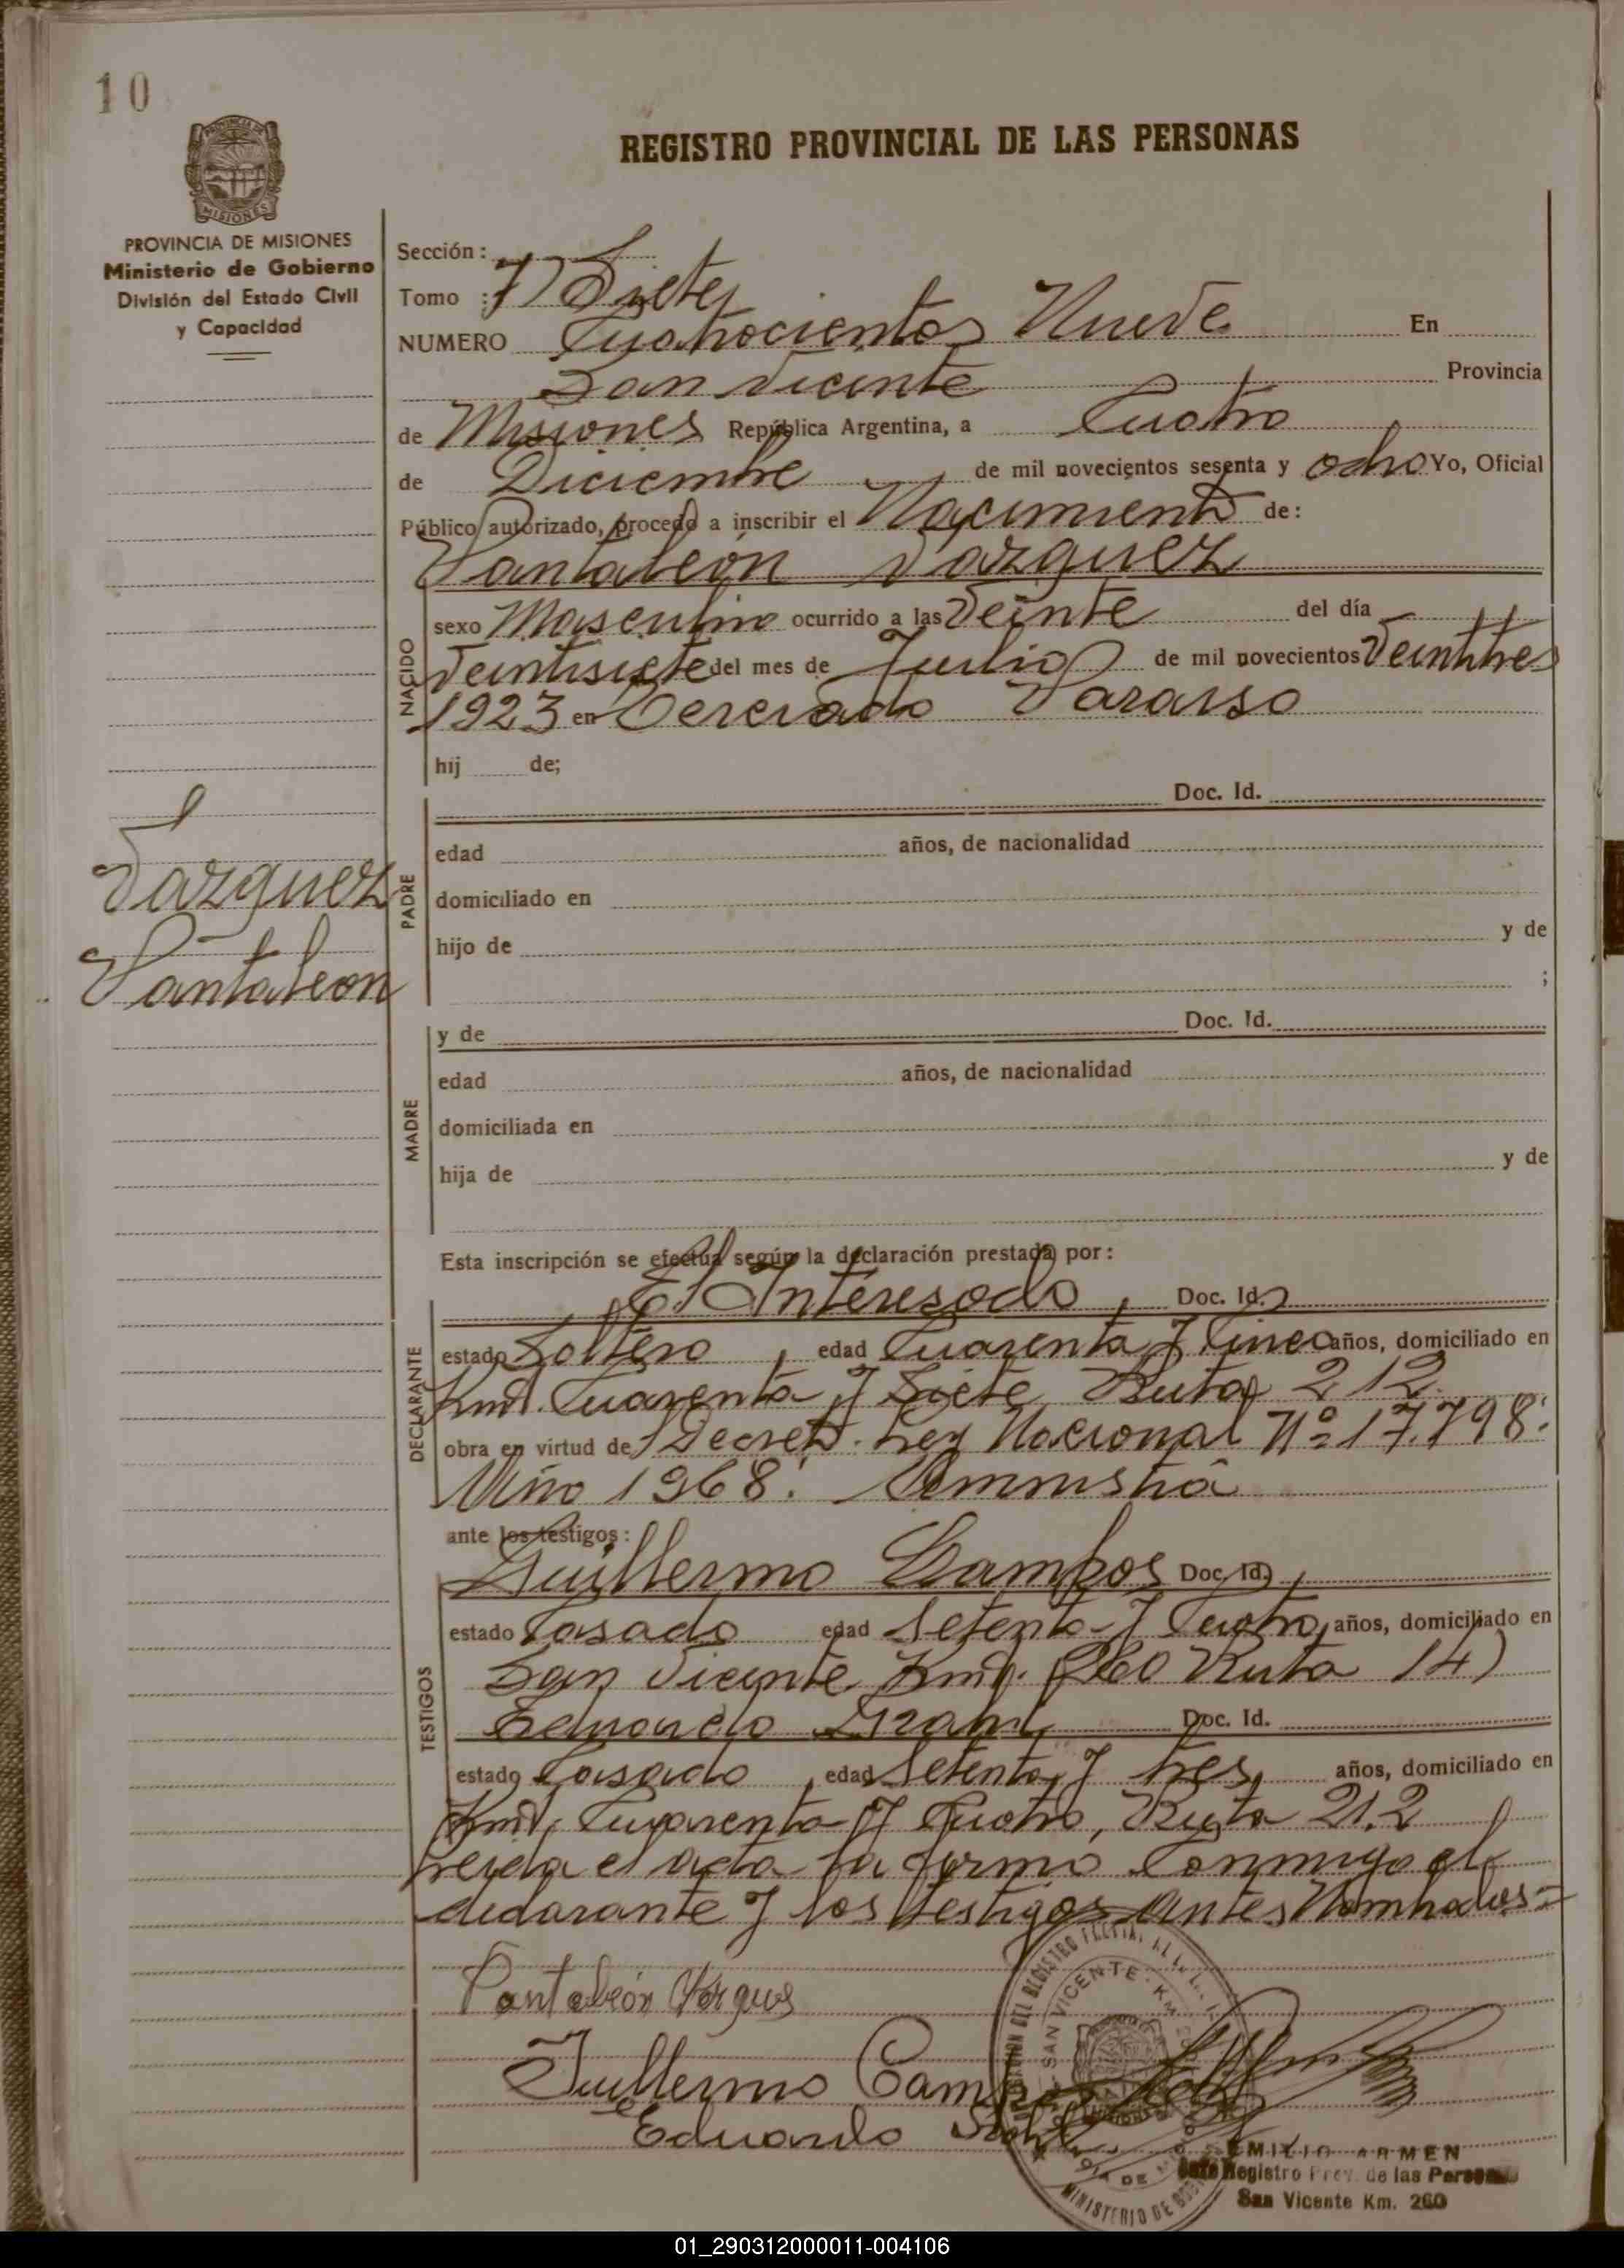 10
REGISTRO PROVINCIAL DE LAS PERSONAS
PROVINCIA DE MISIONES
Ministerio de Gobierno
División del Estado Civil
y Capacidad
Sección:
Tomo : 7) Siete)
NUMERO Cuatrocientos Nueve En
San Vicente Provincia
de Misiones República Argentina, a Cuatro
de Diciembre de mil novecientos sesenta y ocho Yo, Oficial
Público autorizado, procedo a inscribir el Nacimiento de:
Pantaleón Vazquez
NACIDO
sexo Masculino ocurrido a las Veinte del día
Veintisiete del mes de Julio de mil novecientos Veintitres
1923 en Cercado Paraiso
hij de;
Vazquez
Pantaleon
PADRE
Doc. Id.
edad años, de nacionalidad
domiciliado en
hijo de y de
;
MADRE
y de Doc. Id.
edad años, de nacionalidad
domiciliada en
hija de y de
Esta inscripción se efectúa según la declaración prestada por:
El Interesado, Doc. Id.
DECLARANTE
estado Soltero, edad Cuarenta y Cinco años, domiciliado en
Kmt. Cuarenta y Siete Ruta 212.
obra en virtud de Decreto. Ley Nacional Nº 17.798.
Año 1968.
ante los testigos:
Guillermo Campos Doc. Id.
TESTIGOS
estado Casado edad Setenta y Cuatro, años, domiciliado en
San Vicente Kmt. 260 Ruta 14)
Doc. Id.
estado Casado, edad Setenta y tres, años, domiciliado en
Kmt, Cuarenta y Cuatro, Ruta 212
Leida el acta la firma Conmigo el
declarante y los testigos antes Nombrados=
Pantaleón
Guillermo Campos
Eduardo
SAN VICENTE - KM
EMILIO ARMEN
Jefe Registro Prov. de las Personas
San Vicente Km. 260
01_290312000011-004106